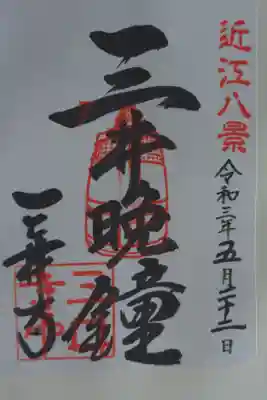 近江八景
令和三年五月二十二日
三井晩鐘
三井寺